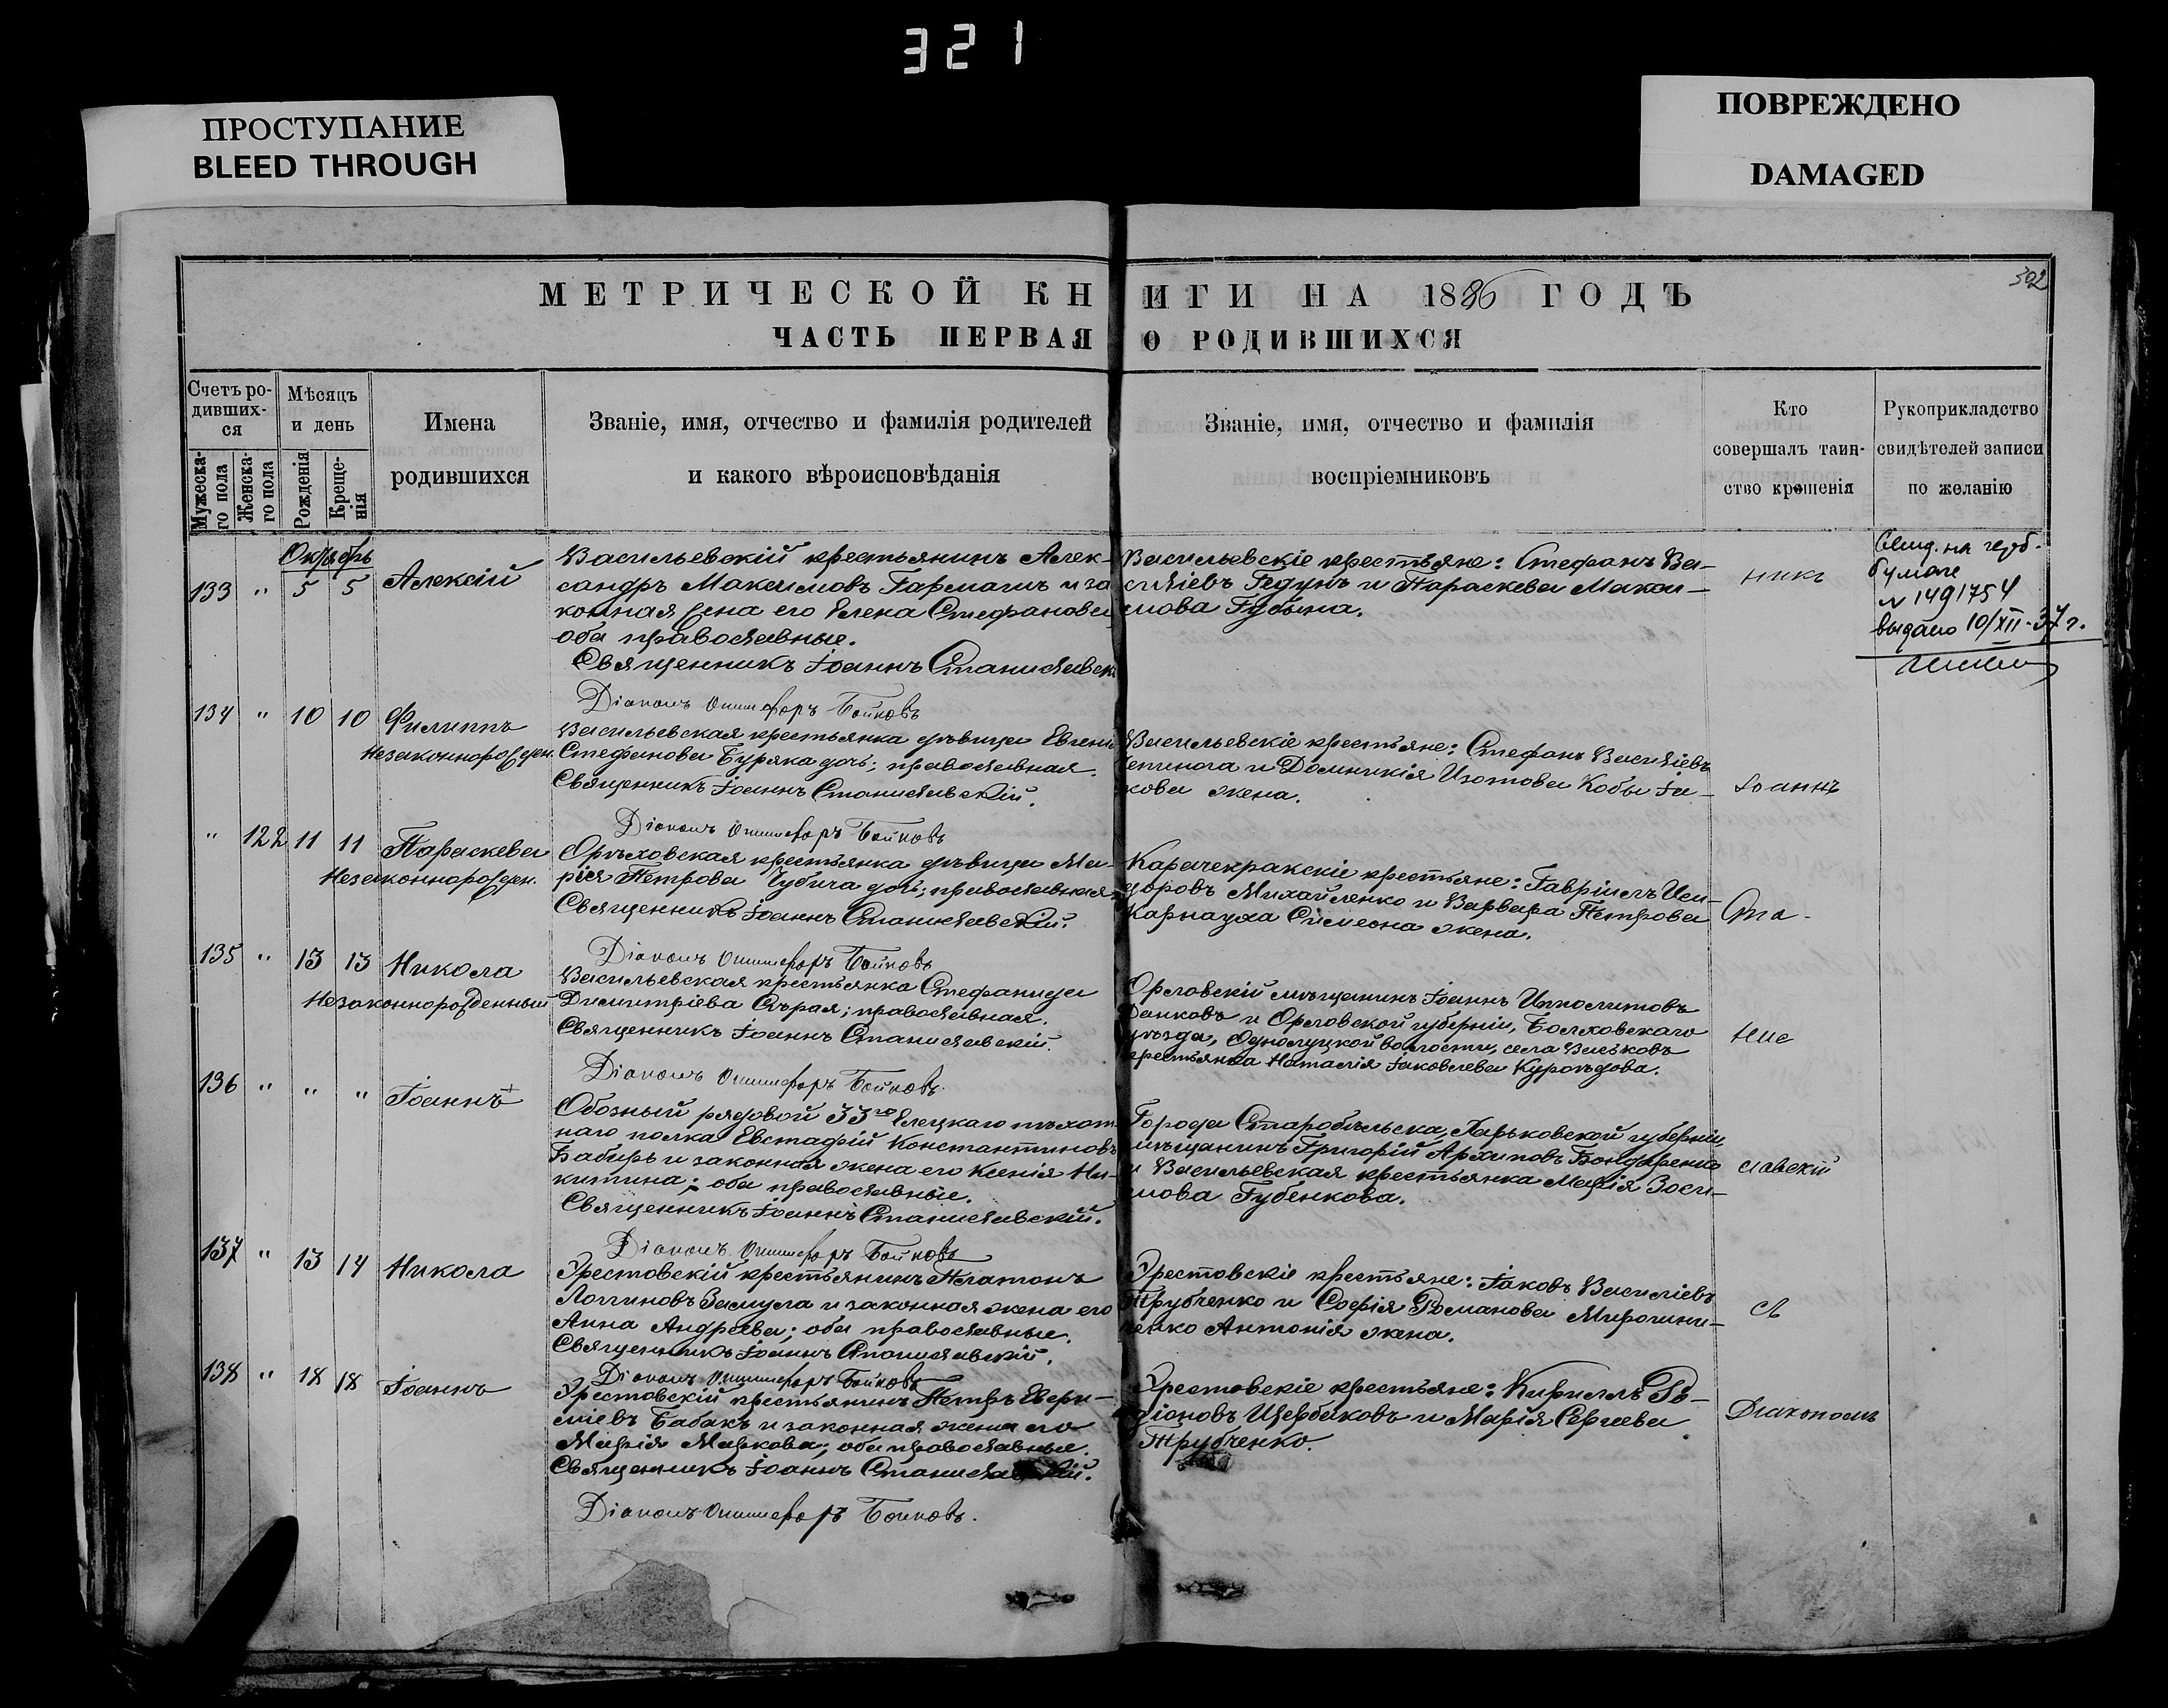 321
ПРОСТУПАНИЕ
BLEED THROUGH
ПОВРЕЖДЕНО
DAMAGED
302
МЕТРИЧЕСКОЙ КНИГИ НА 1886 ГОДЪ
ЧАСТЬ ПЕРВАЯ О РОДИВШИХСЯ
Счетъ ро-
дивших-
ся
Мужеска-
го пола
Женска-
го пола
Мѣсяцъ
и день
Рожденія
Креще-
нія
Имена
родившихся
Званіе, имя, отчество и фамилія родителей
и какого вѣроисповѣданія
Званіе, имя, отчество и фамилія
воспріемниковъ
Кто
совершалъ таин-
ство крещенія
Рукоприкладство
свидѣтелей записи
по желанію
Октябрь
133 " 5 5 Алексій
Васильевскій крестьянинъ Алек-
сандръ Максимовъ Гармашъ и за
конная жена его Елена Стефанова
оба православные.
Священникъ Іоаннъ Станиславскі
Діаконъ Онисифоръ Бойковъ
Васильевскіе крестьяне: Стефанъ Ва-
силіевъ Гедунъ и Параскева Макси-
мова Губына.
никъ
Свид. на герб.
бумаге
№ 1491754
выдано 10/XII-37 г.
134 " 10 10 Филиппъ
Незаконнорожден.
Васильевская крестьянка дѣвица Евгені
Стефанова Буряка дочь; православная.
Священникъ Іоаннъ Станиславскій.
Діаконъ Онисифоръ Бойковъ
Васильевскіе крестьяне: Стефанъ Василіевъ
Чепинога и Домникія Изотова Кобы Іа-
кова жена.
Іоаннъ
" 122 11 11 Параскева
Незаконнорожден.
Орѣховская крестьянка дѣвица Ма-
рія Петрова Чубича дочь; православная
Священникъ Іоаннъ Станиславскій.
Діаконъ Онисифоръ Бойковъ
Карачекракскіе крестьяне: Гавріилъ Иси-
доровъ Михайленко и Варвара Петрова
Карнауха Симеона жена.
Ста-
135 " 13 13 Никола
Незаконнорожденный
Васильевская крестьянка Стефанида
Димитріева Сѣрая; православная.
Священникъ Іоаннъ Станиславскій.
Діаконъ Онисифоръ Бойковъ.
Орловскій мѣщанинъ Іоаннъ Ипполитовъ
Данковъ и Орловской губерніи, Болховскаго
уѣзда, Однолуцкой волости, села Вильковъ
крестьянка Наталія Іаковлева Куроѣдова.
нис
136 " " " Іоаннъ
Обозный рядовой 33го Елецкаго пѣхот-
наго полка Евстафій Константиновъ
Бабырь и законная жена его Ксенія Ни-
китина; оба православные.
Священникъ Іоаннъ Станиславскій.
Діаконъ Онисифоръ Бойковъ
Города Старобѣльска, Харьковской губерніи,
мѣщанинъ Григорій Архиповъ Бондаренко
и Васильевская крестьянка Марія Зоси-
мова Губенкова.
славскій
137 " 13 14 Никола
Эрестовскій крестьянинъ Платонъ
Логгиновъ Замула и законная жена его
Анна Андреева; оба православные.
Священникъ Іоаннъ Станиславскій.
Діаконъ Онисифоръ Бойковъ
Эрестовскіе крестьяне: Іаковъ Василіевъ
Трубченко и Софія Романова Мирошни-
ченко Антонія жена.
съ
138 " 18 18 Іоаннъ
Эрестовскій крестьянинъ Петръ Евфи-
міевъ Бабакъ и законная жена его
Марія Маркова; оба православные.
Священникъ Іоаннъ Станиславскій.
Діаконъ Онисифоръ Бойковъ.
Эрестовскіе крестьяне: Кириллъ Ро-
діоновъ Щербаковъ и Марія Сергіева
Трубченко.
Діакономъ